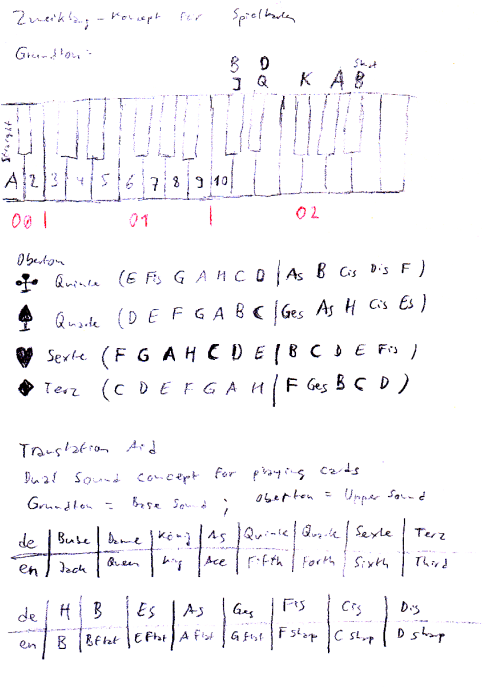 Zweiklang - Konzept für Spielkarten
Grundton:
B D Skat
J Q K A B
Straight
A 2 3 4 5 6 7 8 9 10
00 | 01 | 02
Oberton
Quinte (E Fis G A H C D | As B Cis Dis F)
Quarte (D E F G A B C | Ges As H Cis Es)
Sexte (F G A H C D E | B C D E Fis)
Terz (C D E F G A H | F Ges B C D)
Translation Aid
Dual Sound concept for playing cards
Grundton = Base Sound ; Oberton = Upper Sound
de | Bube | Dame | König | As | Quinte | Quarte | Sexte | Terz
en | Jack | Queen | King | Ace | Fifth | Forth | Sixth | Third
de | H | B | Es | As | Ges | Fis | Cis | Dis
en | B | B flat | E flat | A flat | G flat | F sharp | C sharp | D sharp